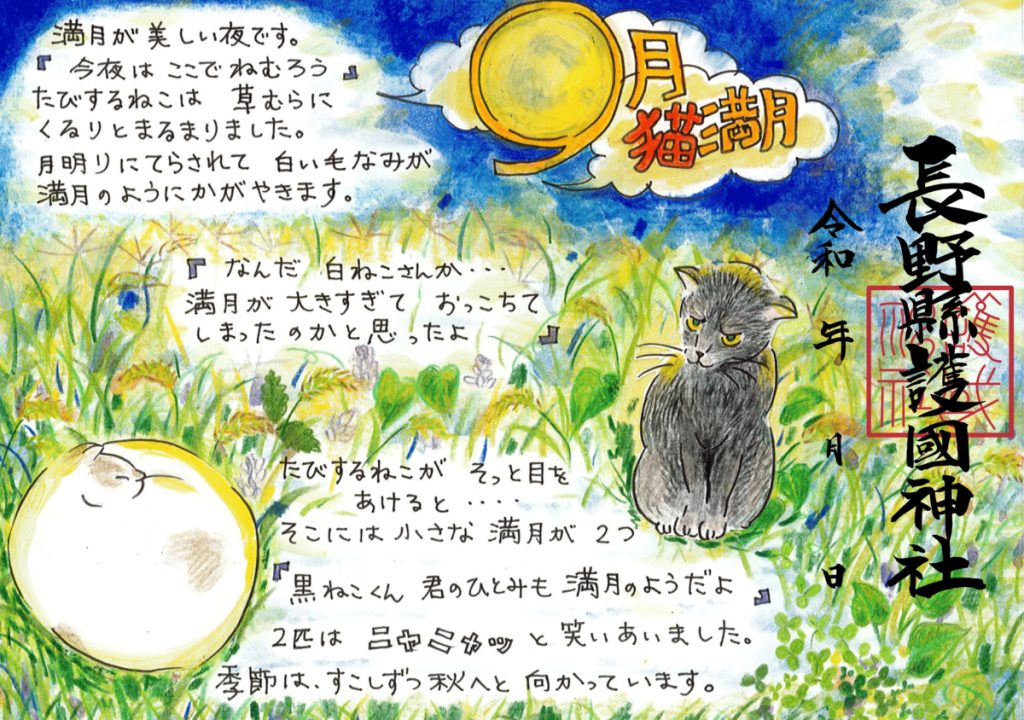 満月が美しい夜です。
『今夜は ここで ねむろう』
たびするねこは 草むらに
くるりとまるまりました。
月明りにてらされて 白い毛なみが
満月のようにかがやきます。
9月
猫満月
『なんだ 白ねこさんか・・・
満月が 大きすぎて おっこちて
しまったのかと思ったよ』
たびするねこが そっと目を
あけると・・・・
そこには 小さな 満月が 2つ
『黒ねこくん 君のひとみも 満月のようだよ』
2匹は ニャニャッ と 笑いあいました。
季節は、すこしずつ秋へと 向かっています。
長野縣護國神社
令和 年 月 日